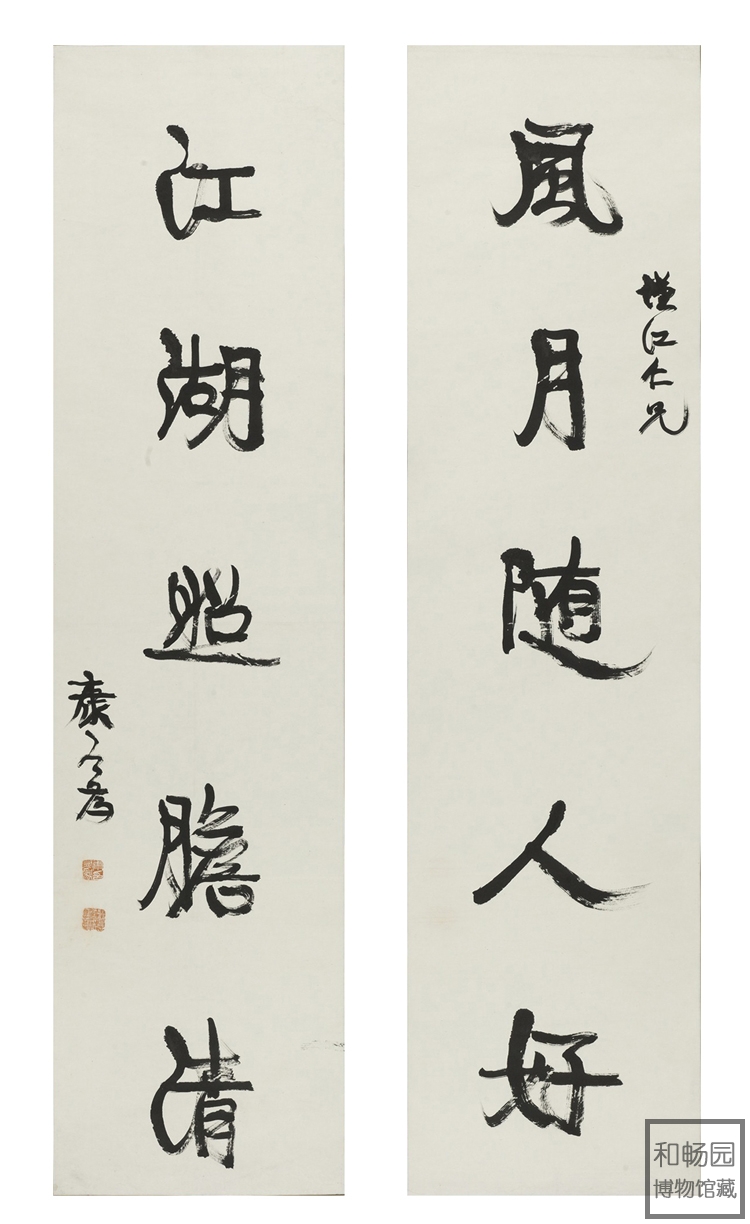 風月随人好
江仁兄
江湖照膽清
康有為
和畅园
博物馆藏